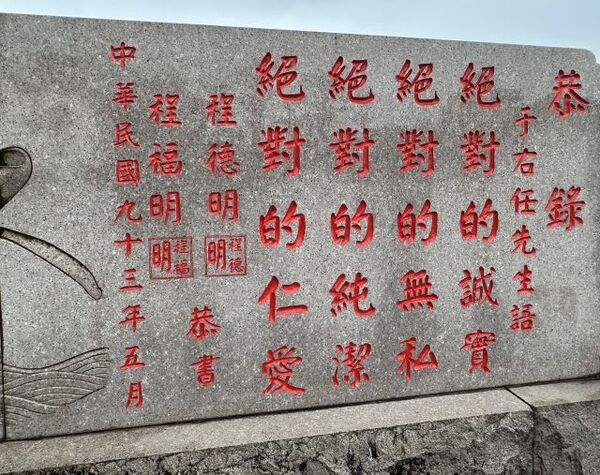 恭錄
于右任先生語
絕對的誠實
絕對的無私
絕對的純潔
絕對的仁愛
程德明
程德明
恭書
程福明
程福明
中華民國九十三年五月